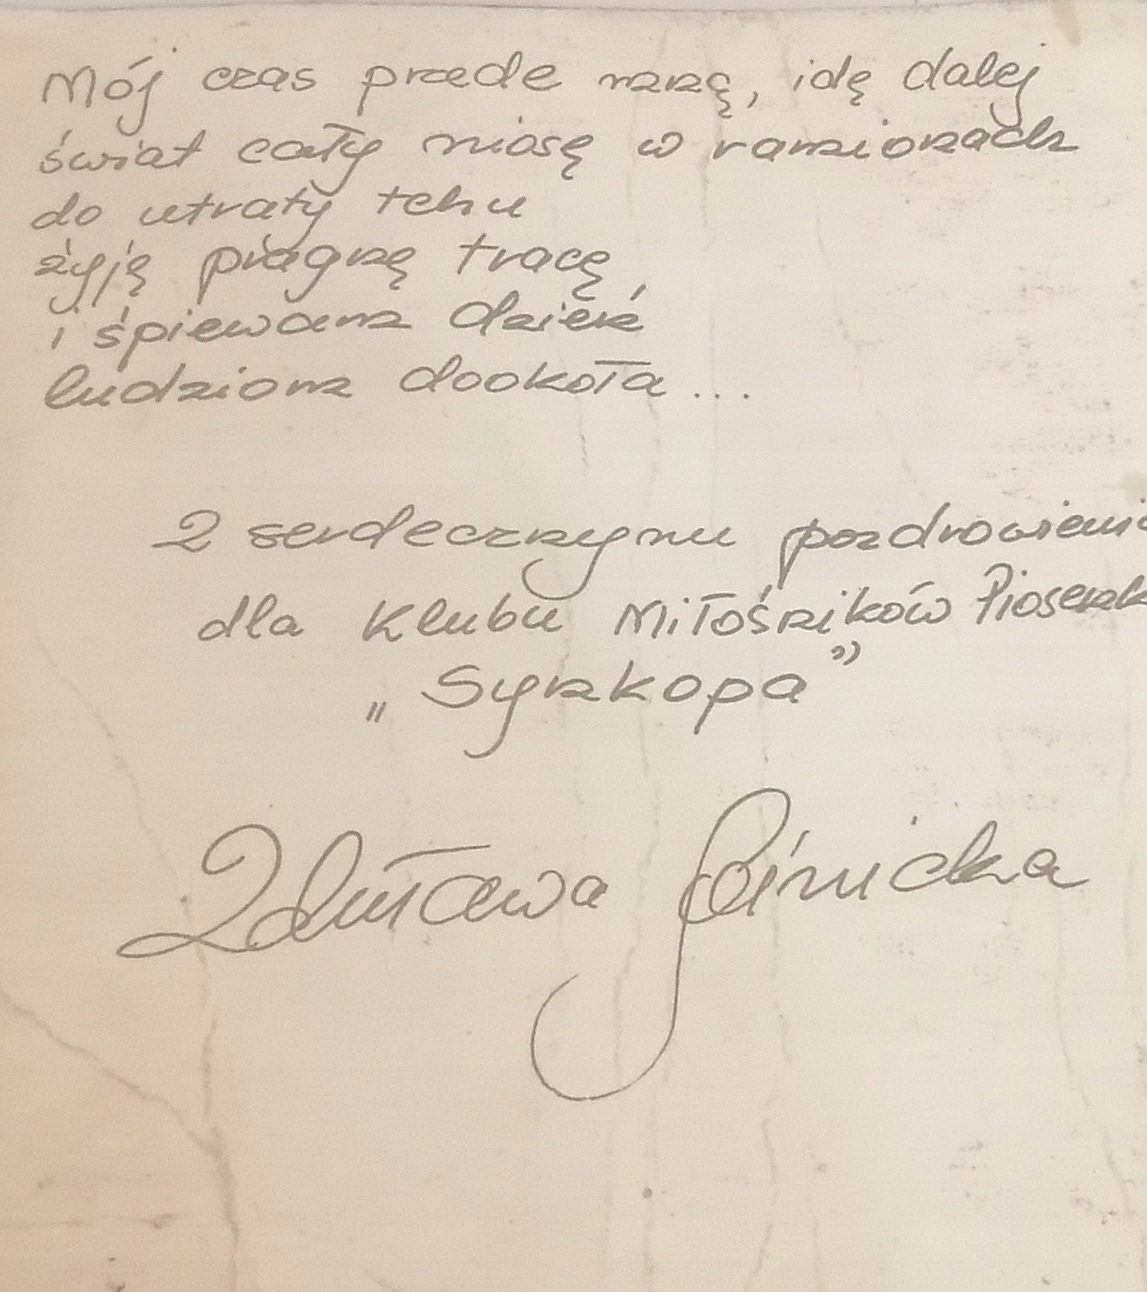 Mój czas przede mną, idę dalej
świat cały niosę w ramionach
do utraty tchu
żyję pragnę tracę
i śpiewam dzień
ludziom dookoła...
Z serdecznymi pozdrowieni
dla Klubu Miłośników Piosenk
„Synkopa”
Zdzisława Sośnicka